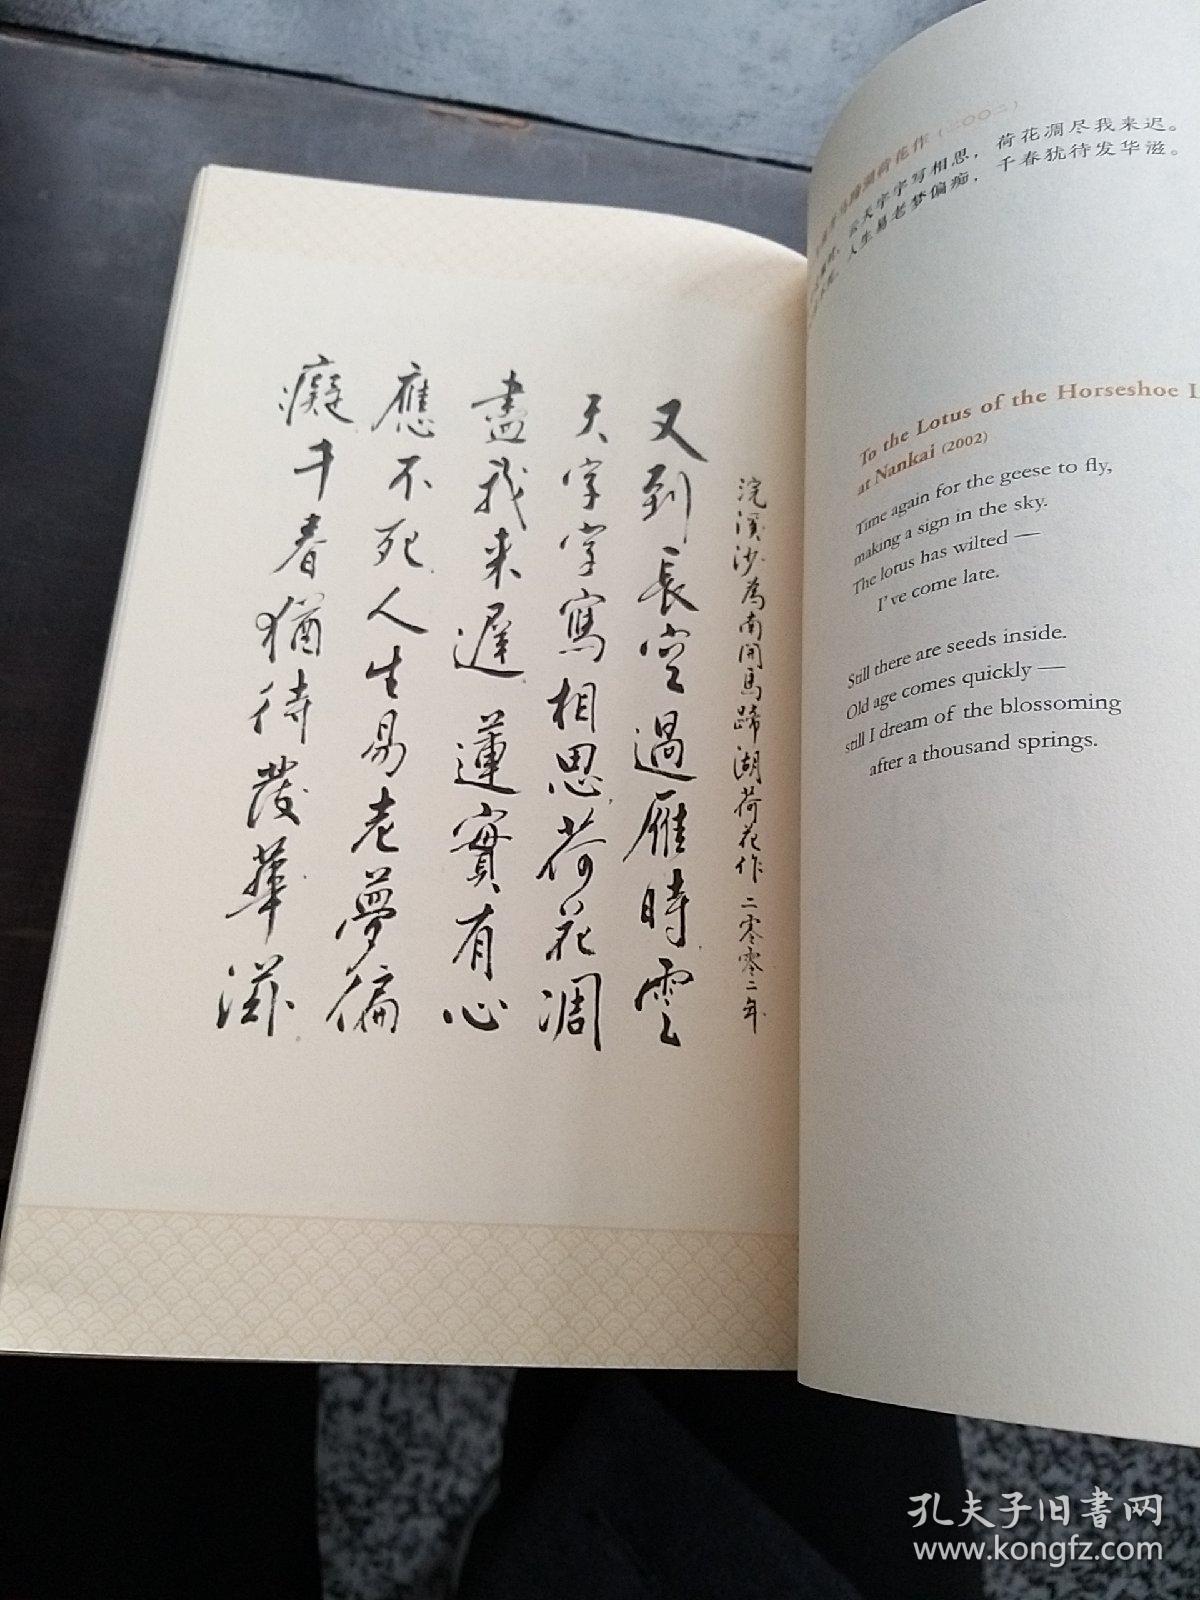 浣溪沙為南開馬蹄湖荷花作二零零二年
又到長空過雁時雲
天字字寫相思荷花凋
盡我来遲蓮實有心
應不死人生易老夢偏
癡千春猶待發華滋
馬蹄湖荷花作(二〇〇二)
云天字字写相思，荷花凋尽我来迟。
人生易老梦偏痴，千春犹待发华滋。
To the Lotus of the Horseshoe L
at Nankai (2002)
Time again for the geese to fly,
making a sign in the sky.
The lotus has wilted —
I've come late.
Still there are seeds inside.
Old age comes quickly —
still I dream of the blossoming
after a thousand springs.
孔夫子旧书网
www.kongfz.com